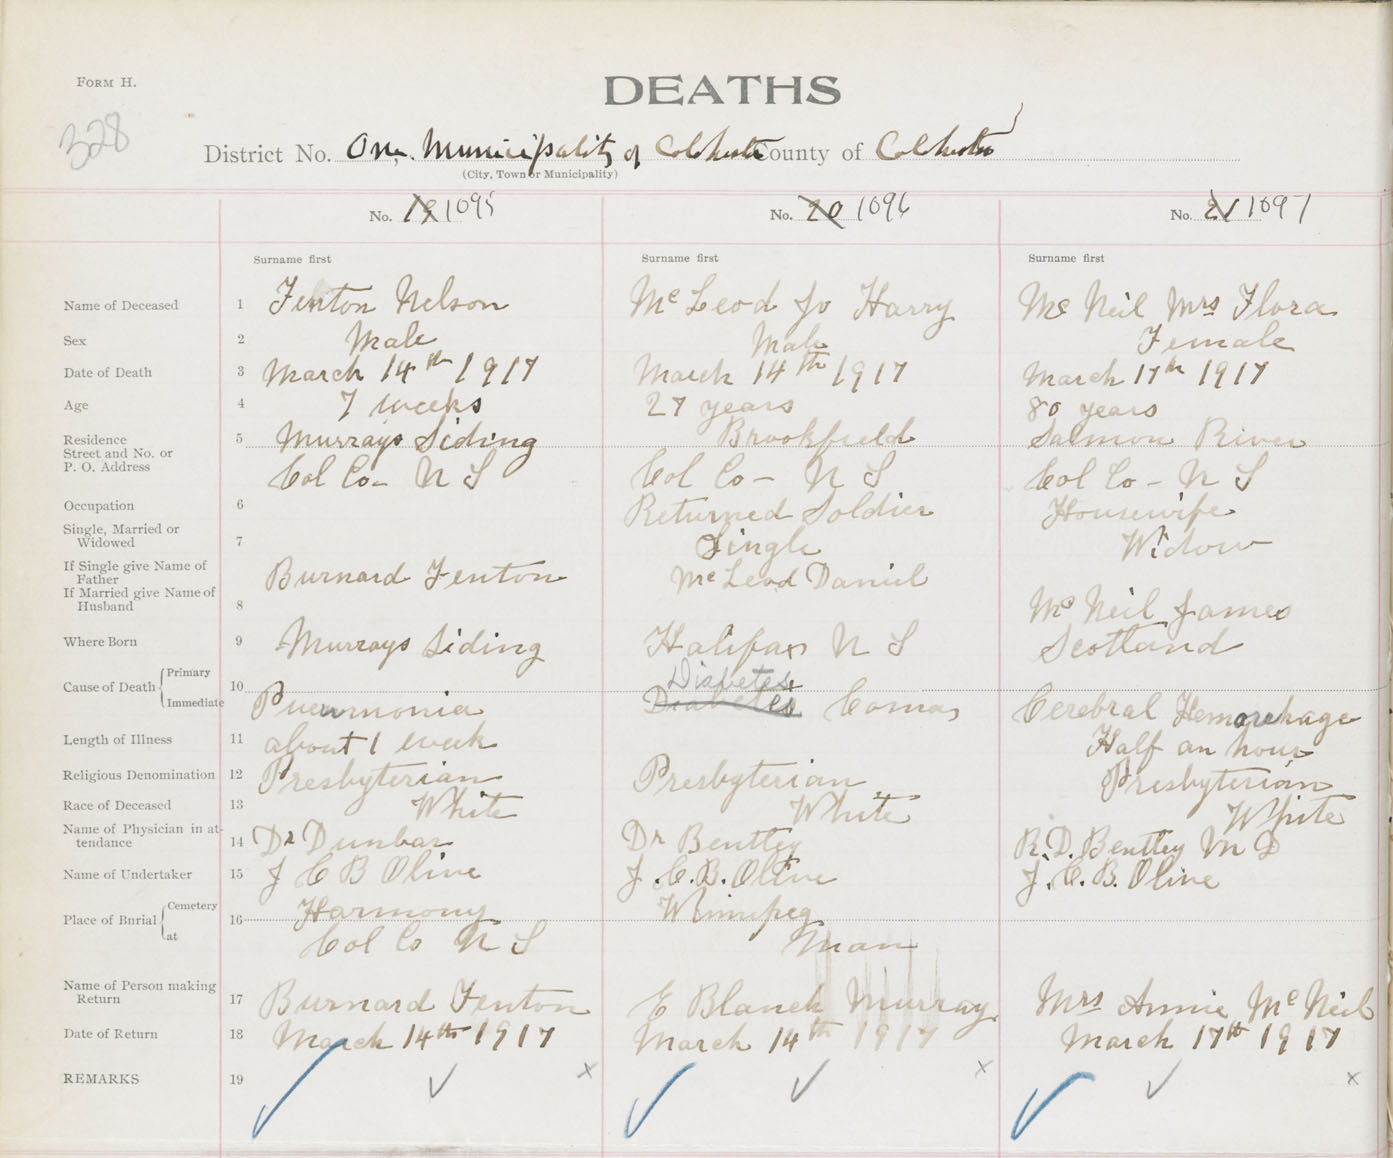 FORM H.
DEATHS
328
District No. One. Municipality of Colchester County of Colchester
(City, Town or Municipality)
No. 19 1095
No. 20 1096
No. 21 1097
Surname first
Surname first
Surname first
Name of Deceased 1 Fenton Nelson McLeod Jo Harry Mc Neil Mrs Flora
Sex 2 Male Male Female
Date of Death 3 March 14th 1917 March 14th 1917 March 17th 1917
Age 4 7 weeks 27 years 80 years
Residence 5 Murrays Siding Brookfield Salmon River
Street and No. or
P. O. Address Col Co - N S Col Co - N S Col Co - N S
Occupation 6 Returned Soldier Housewife
Single, Married or
Widowed 7 Single Widow
If Single give Name of
Father Burnard Fenton McLeod Daniel
If Married give Name of
Husband 8 Mc Neil James
Where Born 9 Murrays Siding Halifax N S Scotland
Cause of Death Primary 10 Diabetes
Immediate Pneumonia Diabetes Coma Cerebral Hemorehage
Length of Illness 11 about 1 week Half an hour
Religious Denomination 12 Presbyterian Presbyterian Presbyterian
Race of Deceased 13 White White White
Name of Physician in at-
tendance 14 Dr Dunbar Dr Bentley R. D. Bentley M D
Name of Undertaker 15 J C B Olive J. C. B. Olive J. C. B. Olive
Place of Burial Cemetery 16 Harmony Winnipeg
at Col Co N S Man
Name of Person making
Return 17 Burnard Fenton E Blanch Murray Mrs Annie McNeil
Date of Return 18 March 14th 1917 March 14th 1917 March 17th 1917
REMARKS 19 x x x